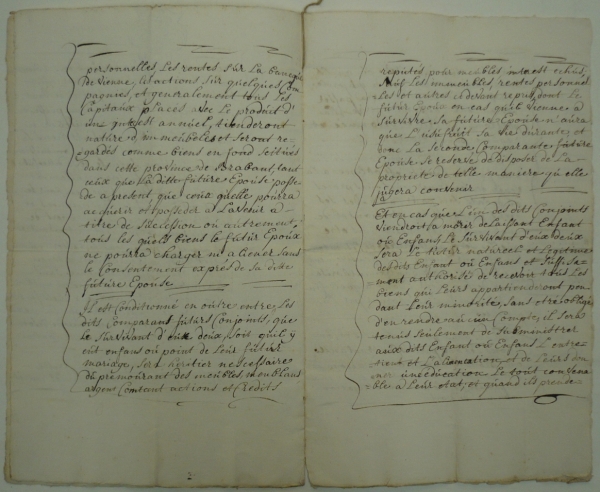 personnelles, Les rentes Sur La banque
de vienne, les actions Sur quelques Com
pagnies, et generalement tous Les
Capitaux places avec Le produit d'
un annuel, tiendront
nature d'immeubles et Seront re-
gardés comme biens en fond Scitués
dans cette province de Brabant, tant
ceux que La ditte future Epouse posse-
de a present, que Ceux qu'elle pourra
acquerir et posseder a L'avenir a
titre de Succession ou autrement,
tous les quels biens Le futur Epoux
ne pourra charger ni aliener Sans
Le Consentement exprés de Sa dite
future Epouse
Il est Conditionné en outre entre Les
dits Comparant futurs Conjoints, que
Le Survivant d'eux deux, Soit quil y
eut enfans ou point de Leur futur
mariage, Sera heritier necessaire
du premourant des meubles meublans
argent Comtant actions et Credits
reputés pour meubles echus,
Les immeubles rentes personnel
les et autres Le
futur Epoux en cas qu'il vienne a
Survivre Sa future Epouse n'aura
que L'usufruit Sa vie durante, et
donc La Seconde Comparante future
Epouse Se reserve de disposer de La
propriete de telle maniere qu'elle
jugera convenir
Et en cas que L'un des dits Conjoints
viendroit a mourir delaissant Enfant
ou Enfans Le Survivant d'eux deux
Sera Le tuteur naturel et Legitime
des dits Enfant ou Enfans et Suffisa-
ment authorisé de recevoir tous Les
biens qui Leurs appartiendront pen-
dant Leur minorité, Sans etre obligé
d'en rendre aucun Compte, il Sera
tenu Seulement de Subministrer
aux dits Enfant ou Enfans L'entre
tien et L'alimentation, et de Leurs don
ner une education Le tout convena
ble a Leur etat, et quand ils prend